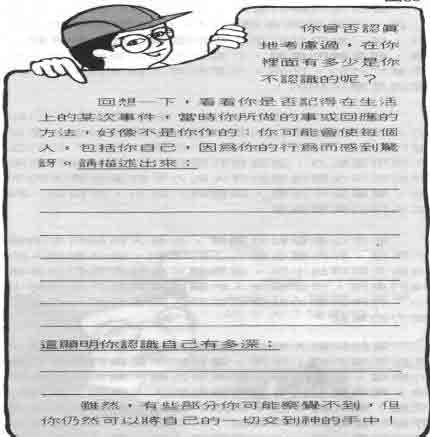 你曾否認真
地考慮過，在你
裡面有多少是你
不認識的呢？
回想一下，看看你是否記得在生活
上的某次事件，當時你所做的事或回應的
方法，好像不是你作的；你可能會使每個
人，包括你自己，因為你的行為而感到驚
訝。請描述出來：
這顯明你認識自己有多深：
雖然，有些部分你可能察覺不到，但
你仍然可以將自己的一切交到神的手中！